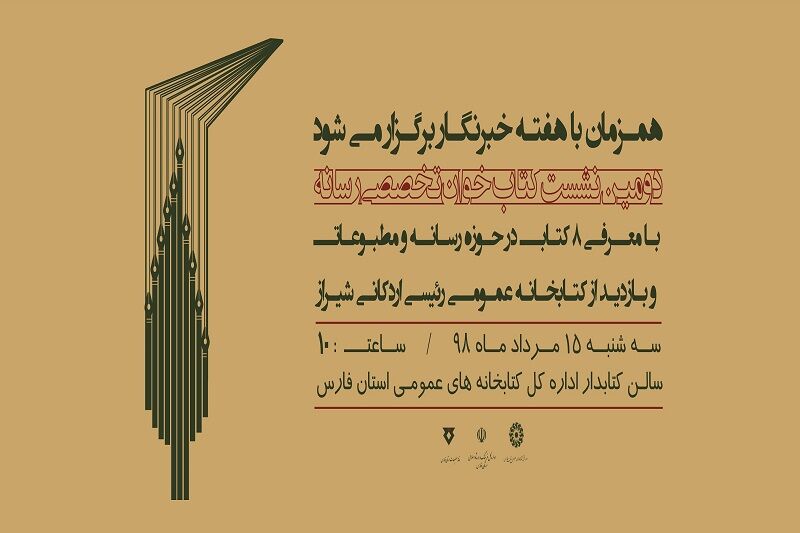 همزمان با هفته خبرنگار برگزار می شود
دومین نشست کتاب خوان تخصصی رسانه
با معرفی ۸ کتاب در حوزه رسانه و مطبوعات
و بازدید از کتابخانه عمومی رئیسی اردکانی شیراز
سه شنبه ۱۵ مرداد ماه ۹۸ / ساعت : ۱۰
سالن کتابدار اداره کل کتابخانه های عمومی استان فارس